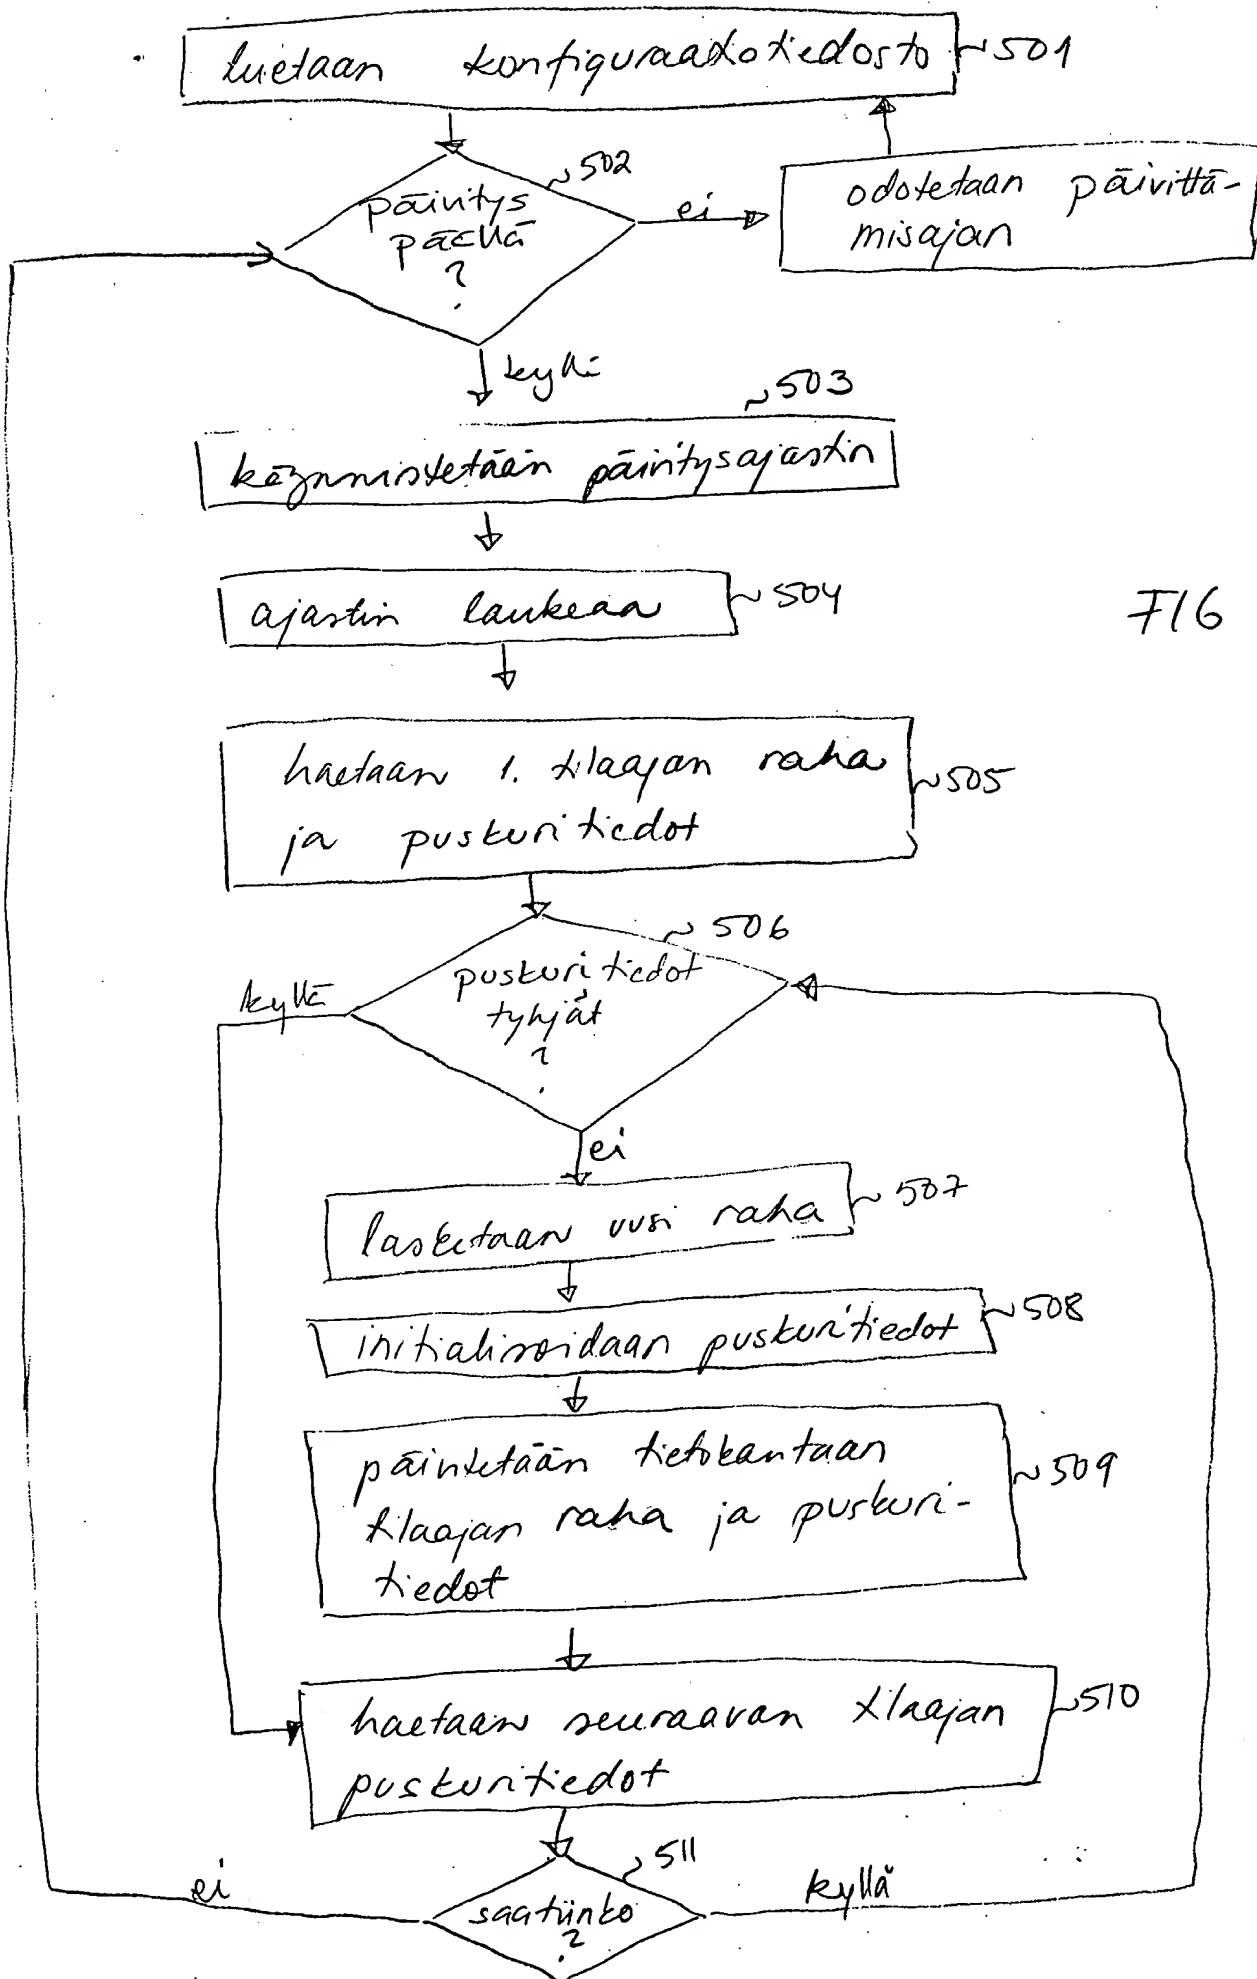 luetaan konfiguraatiotiedosto 501
502
päivitys
päällä
?
ei
odotetaan päivittä-
misajan
kyllä
503
käynnistetään päivitysajastin
ajastin laukeaa 504
FIG
haetaan 1. tilaajan raha
ja puskuritiedot
505
506
puskuritiedot
tyhjät
?
kyllä
ei
lasketaan uusi raha 507
initialisoidaan puskuritiedot 508
päivitetään tietokantaan
tilaajan raha ja puskuri-
tiedot
509
haetaan seuraavan tilaajan
puskuritiedot
510
511
ei
saatiinko
?
kyllä